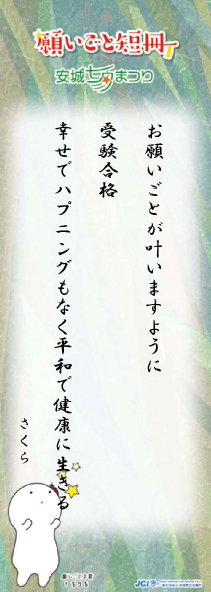 願いごと短冊
安城七夕まつり
お願いごとが叶いますように
受験合格
幸せでハプニングもなく平和で健康に生きる
さくら
JCI